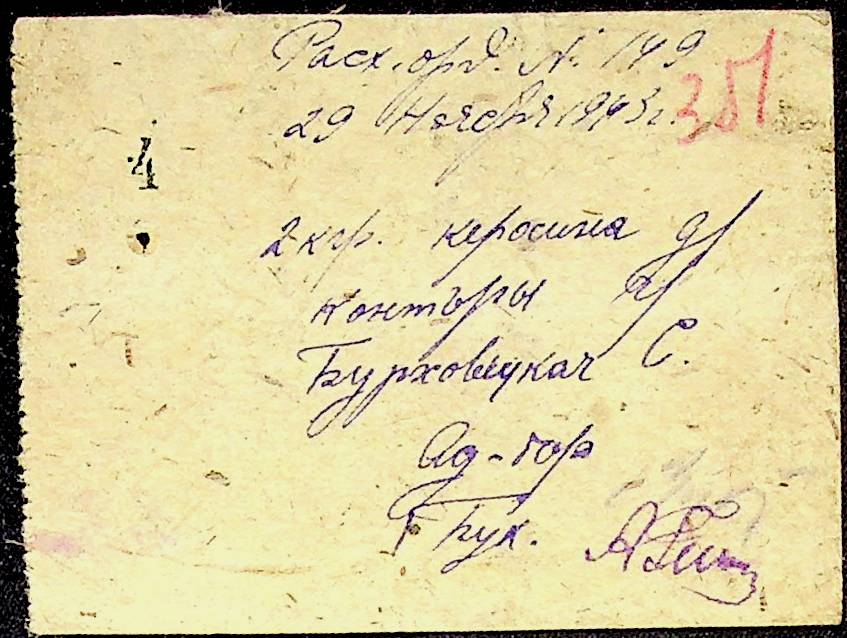 Расх. орд. № 149
29 Ноября 1943 г.
351
4
2 кгр. керосина д/
конторы ч/
Бурховецкая С.
Ад-тор
Г Бух.